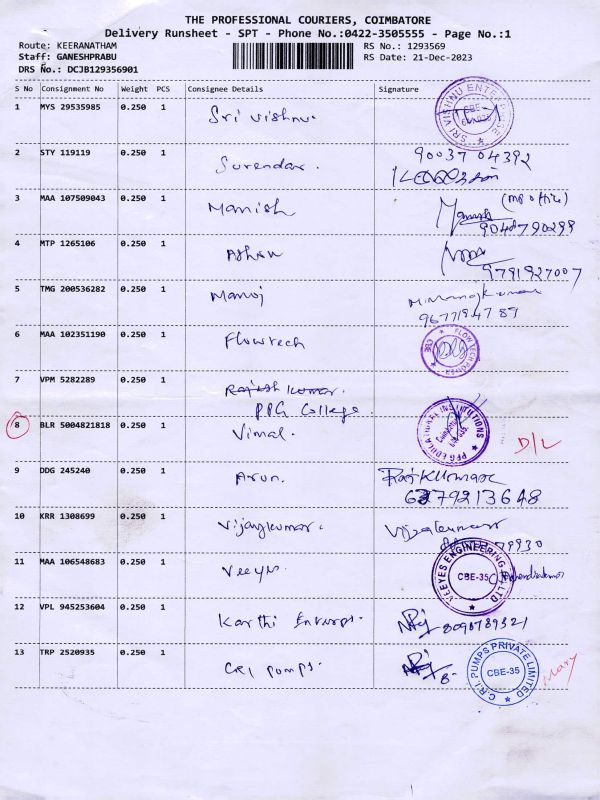 THE PROFESSIONAL COURIERS, COIMBATORE
Delivery Runsheet - SPT - Phone No.:0422-3505555 - Page No.:1
Route: KEERANATHAM RS No.: 1293569
Staff: GANESHPRABU RS Date: 21-Dec-2023
DRS No.: DCJB129356901
S No Consignment No Weight PCS Consignee Details Signature
1 MYS 29535985 0.250 1 Sri Vishnu. SRI VISHNU ENTERPRISE CBE
2 STY 119119 0.250 1 Surendar. 90037 04392
3 MAA 107509043 0.250 1 Manish
4 MTP 1265106 0.250 1 9791927007
5 TMG 200536282 0.250 1 Manoj M.Manojkumar
9677194789
6 MAA 102351190 0.250 1 Flowtech FLOW TECH POWER CBE
7 VPM 5282289 0.250 1 Rajesh Kumar.
PPG College
8 BLR 5004821818 0.250 1 Vimal. PPG EDUCATIONAL INSTITUTIONS D/L
9 DDG 245240 0.250 1 Arun. Rajkumar
6379213648
10 KRR 1308699 0.250 1 Vijaykumar. Vijayakumar
11 MAA 106548683 0.250 1 Veeyes. VEEYES ENGINEERING P LTD CBE-35
12 VPL 945253604 0.250 1 Karthi Enterps.
13 TRP 2520935 0.250 1 CRI Pumps. C.R.I. PUMPS PRIVATE LIMITED CBE-35